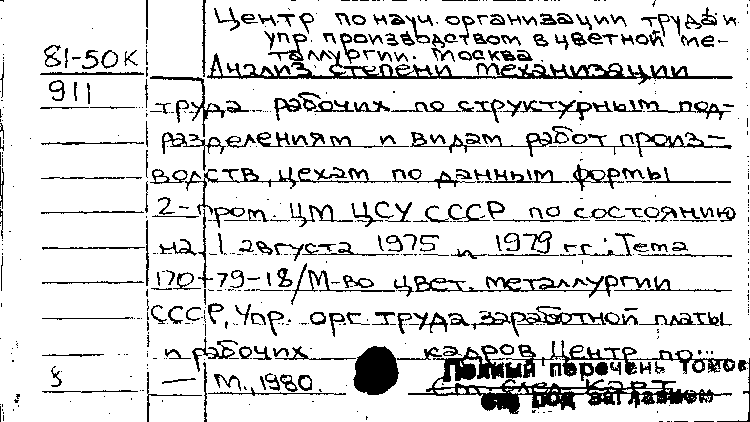 Центр по науч. организации труда и
упр. производством в цветной ме-
таллургии. Москва
81-50к
Анализ степени механизации
911
труда рабочих по структурным под-
разделениям и видам работ, произ-
водств, цехам по данным формы
2-пром. ЦМ ЦСУ СССР по состоянию
на 1 августа 1975 и 1979 гг.: Тема
170-79-18/М-во цвет. металлургии
СССР, Упр. орг. труда, заработной платы
и рабочих кадров, Центр по...
Полный перечень томов
— М., 1980.
См. след. карт.
см под заглавием